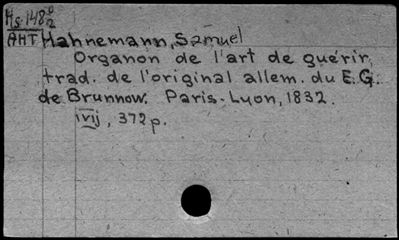 Hs 148
AHT Hahnemann, Samuel
Organon de l'art de guérir,
trad. de l'original allem. du E.G.
de Brunnow. Paris-Lyon, 1832.
ivij, 372 p.